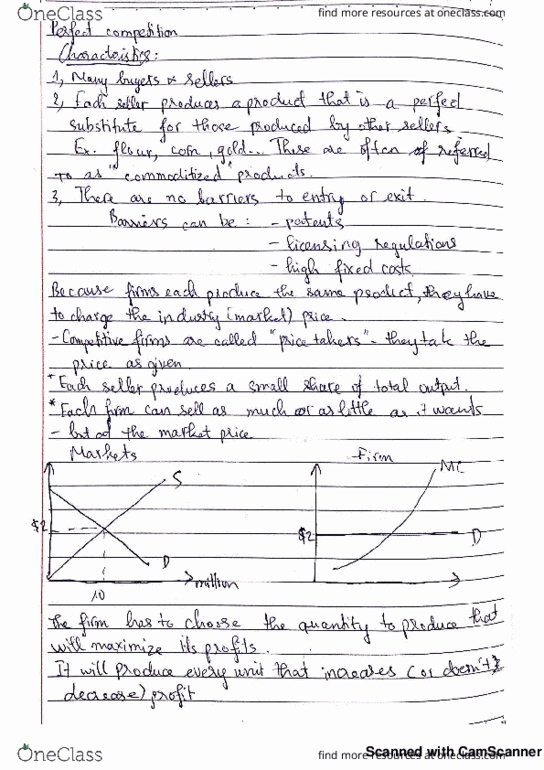 OneClass
find more resources at oneclass.com
Perfect competition
Characteristics:
1, Many buyers & sellers
2, Each seller produces a product that is a perfect
substitute for those produced by other sellers
Ex. flour, corn, gold... These are often of referred
to as "commoditized" products.
3, There are no barriers to entry or exit.
Barriers can be : - patents
- licensing regulations
- high fixed costs
Because firms each produce the same product, they have
to charge the industry (market) price.
- Competitive firms are called "price takers" - they tak the
price as given.
* Each seller produces a small share of total output.
* Each firm can sell as much or as little as it wants
- but at the market price
Markets
Firm
S
MC
$2
$2
D
D
million
10
The firm has to choose the quantity to produce that
will maximize its profits.
It will produce every unit that increases (or doesn't
decrease) profit
OneClass
find more resources at oneclass.com
Scanned with CamScanner